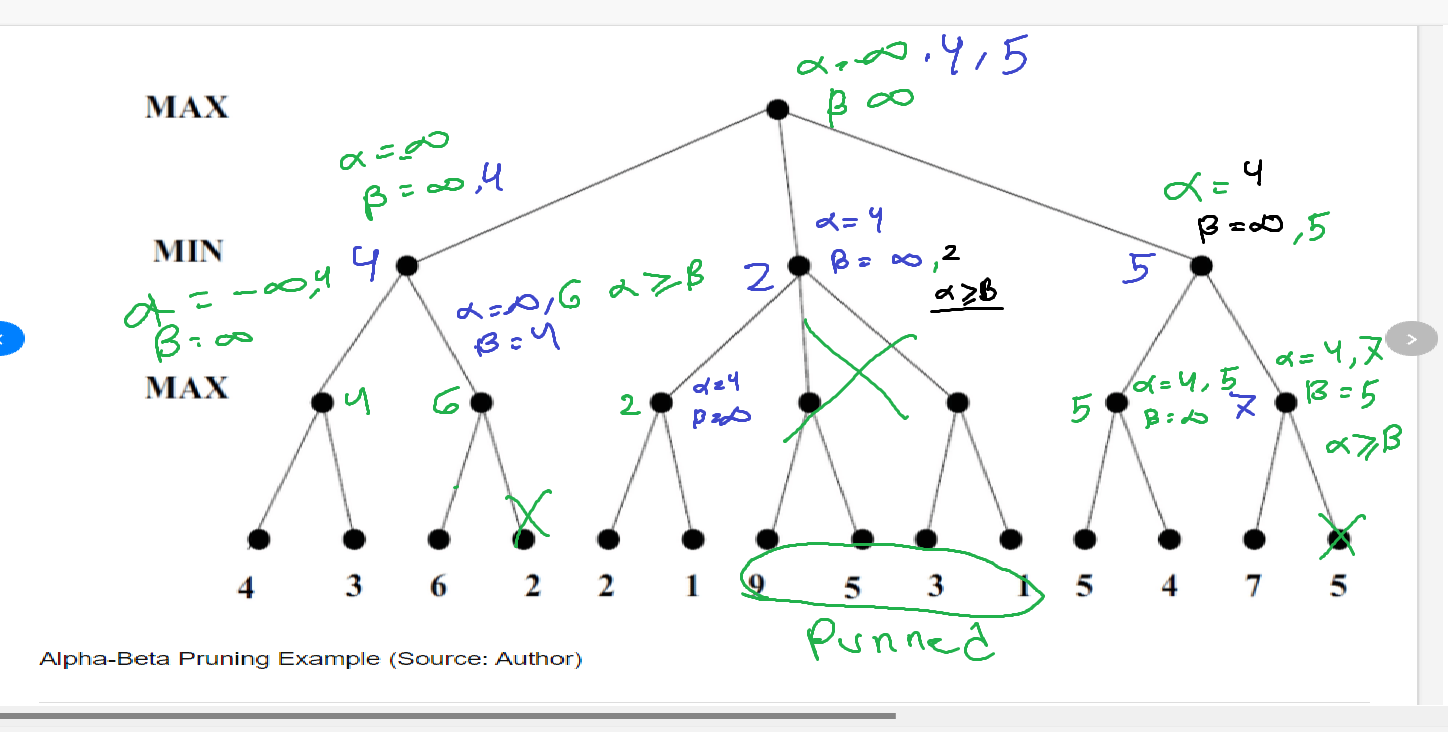 α = -∞, 4, 5
MAX
β ∞
α = -∞
β = ∞, 4
α = 4
β = ∞, 5
MIN
α = 4
β = ∞, 2
α ≥ β
4
2
5
α = -∞, 4
β = ∞
α = ∞, 6 α ≥ β
β = 4
MAX
4
6
2
α = 4
β = ∞
5
α = 4, 5
β = ∞
7
α = 4, 7
β = 5
α ≥ β
4 3 6 2 2 1 9 5 3 1 5 4 7 5
Punned
Alpha-Beta Pruning Example (Source: Author)